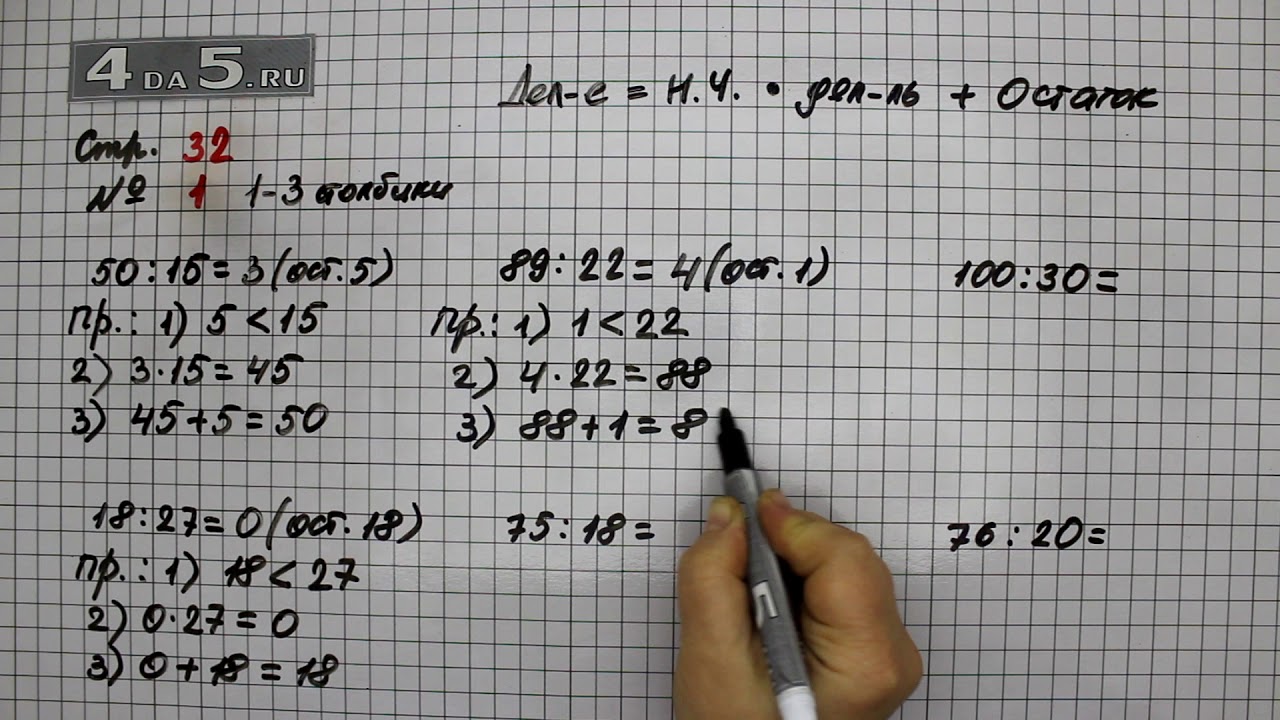 4DA5.RU
Дел-е = Н.Ч. • дел-ль + Остаток
Стр. 32
№ 1 1-3 столбики
50:15=3(ост.5)
пр.: 1) 5<15
2) 3·15=45
3) 45+5=50
89:22=4(ост.1)
пр.: 1) 1<22
2) 4·22=88
3) 88+1=8
100:30=
18:27=0(ост.18)
пр.: 1) 18<27
2) 0·27=0
3) 0+18=18
75:18=
76:20=